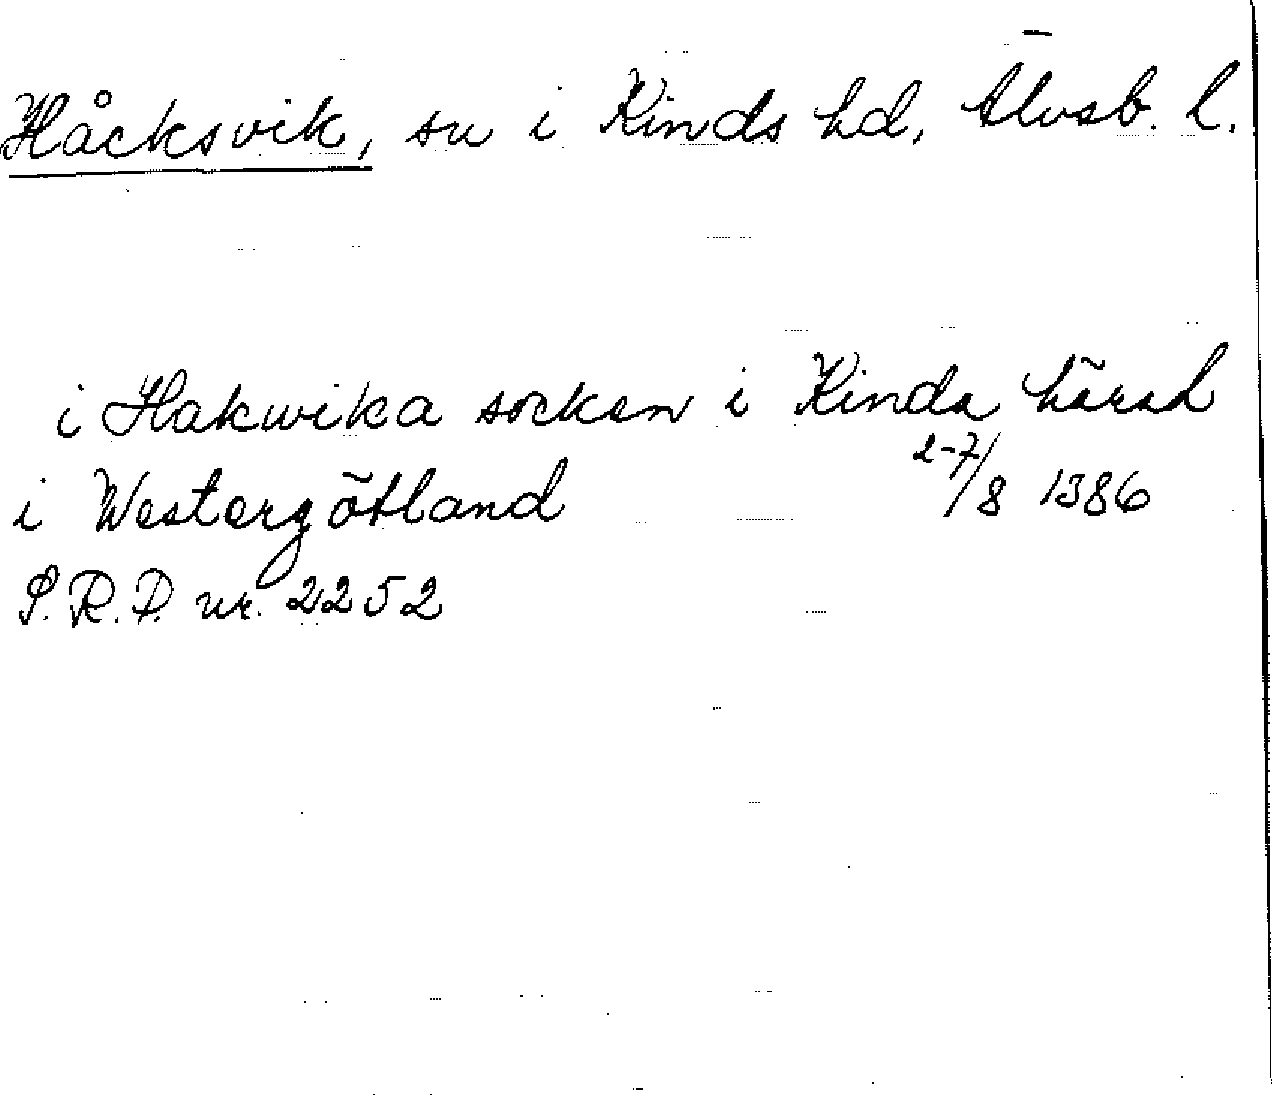 Håcksvik, sn i Kinds hd, Älvsb. l.
i Hakwika socken i Kinda härad
i Westergötland 2-7/8 1386
S.R.P. nr. 2252